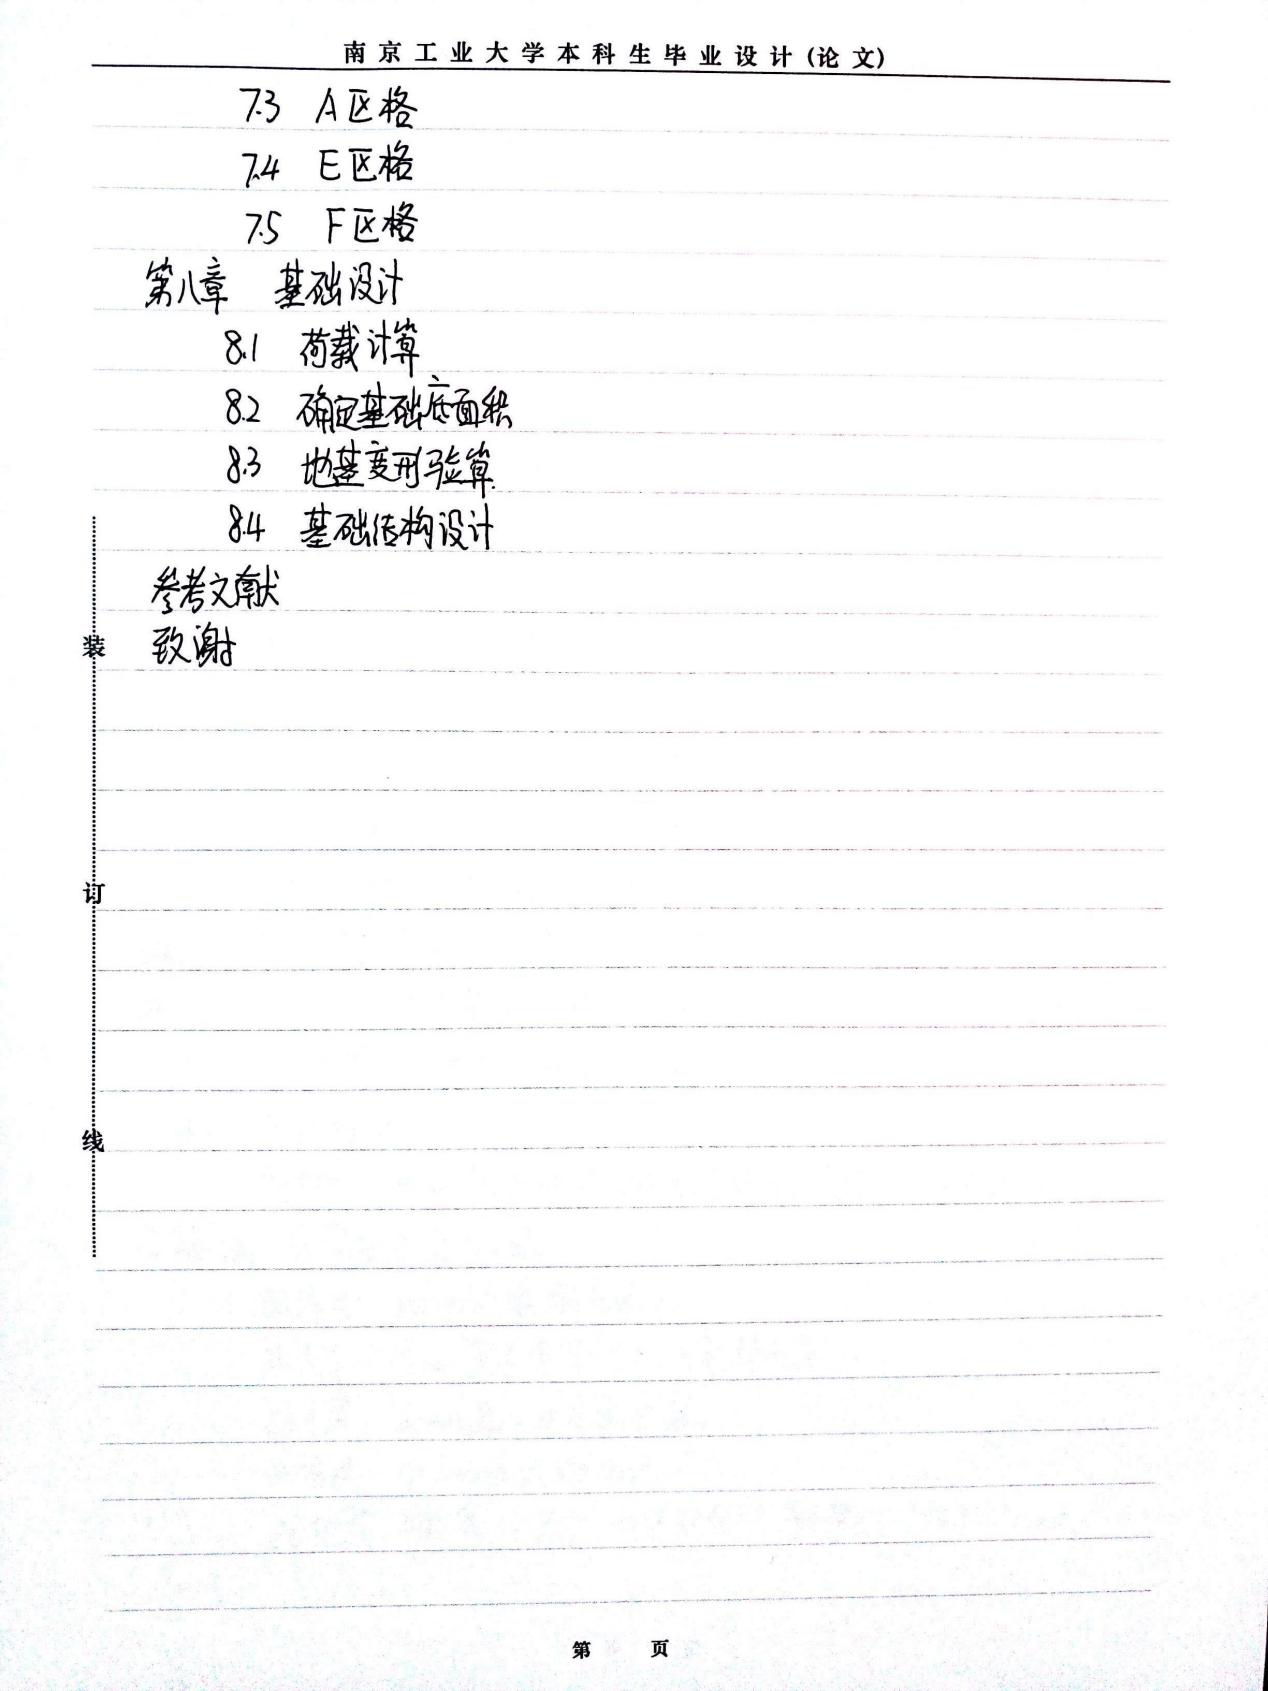 南京工业大学本科生毕业设计(论文)
7.3 A区格
7.4 E区格
7.5 F区格
第八章 基础设计
8.1 荷载计算
8.2 确定基础底面积
8.3 地基变形验算
8.4 基础结构设计
参考文献
致谢
装
订
线
第 页